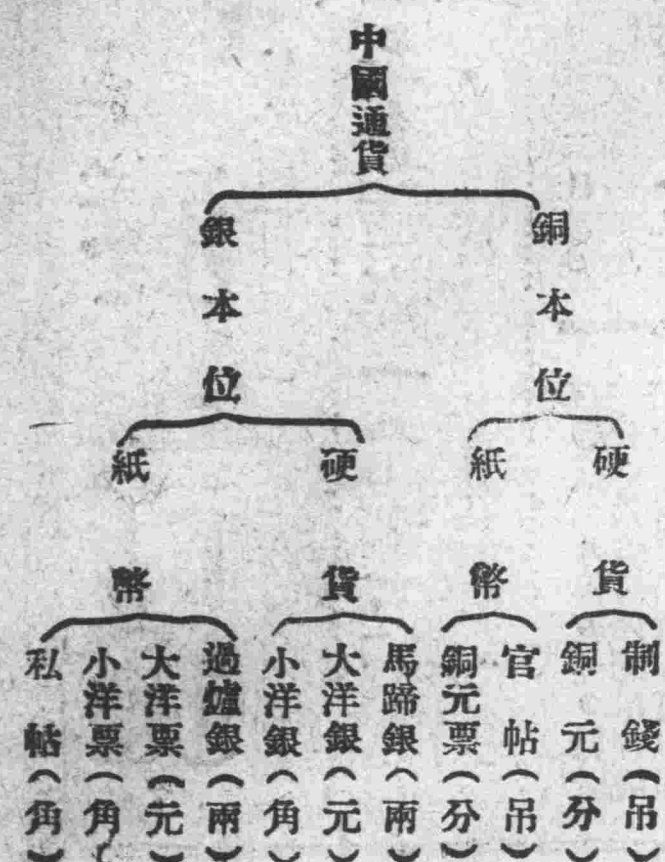 中國通貨
銅本位
硬貨
制錢(吊)
銅元(分)
紙幣
官帖(吊)
銅元票(分)
銀本位
硬貨
馬蹄銀(兩)
大洋銀(元)
小洋銀(角)
紙幣
過爐銀(兩)
大洋票(元)
小洋票(角)
私帖(角)